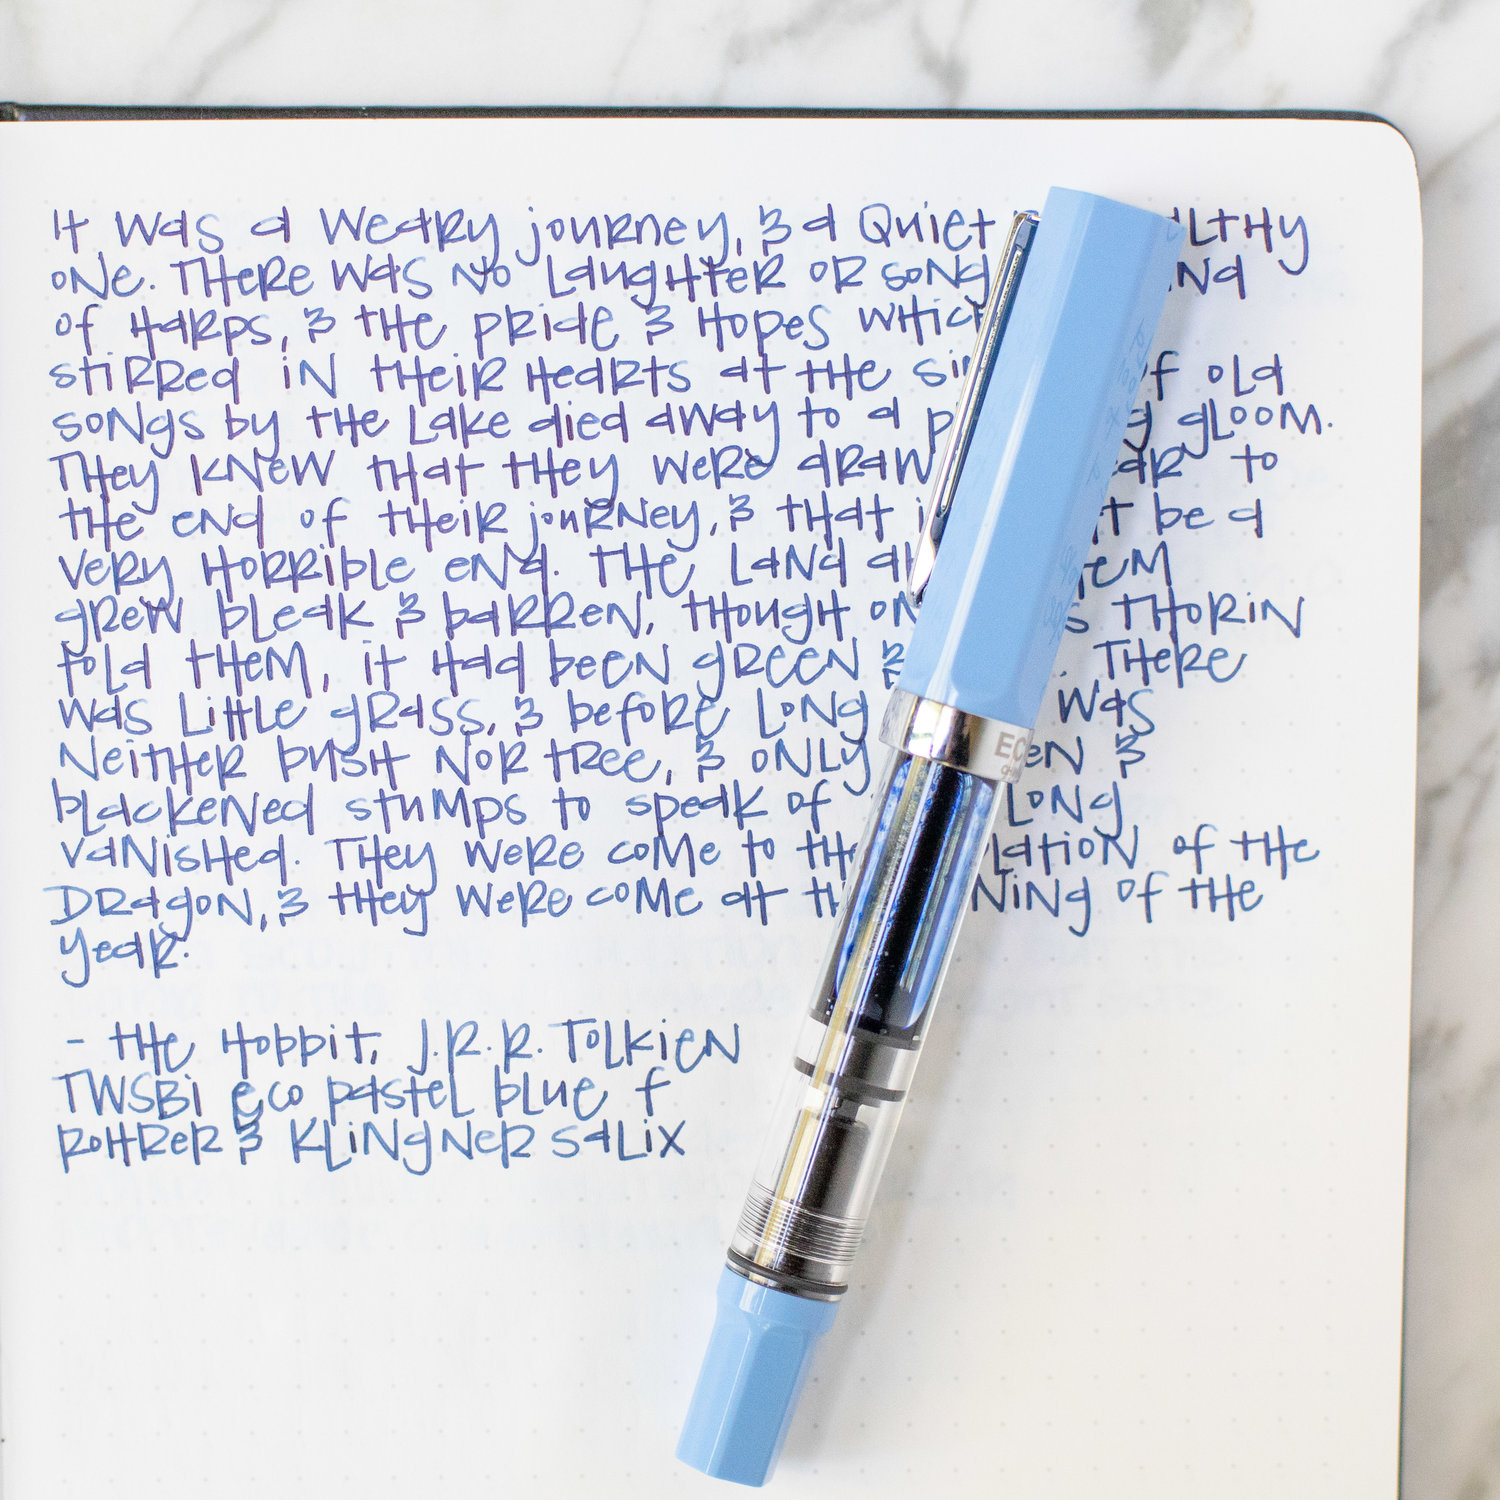 It was a weary journey, & a quiet
one. There was no laughter or song
of harps, & the pride & hopes which
stirred in their hearts at the of old
songs by the lake died away to a gloom.
They knew that they were to
the end of their journey, & that be a
very horrible end. The land
grew bleak & barren, though Thorin
told them, it had been green & There
was little grass, & before long was
neither bush nor tree, & only &
blackened stumps to speak of long
vanished. They were come to the of the
Dragon, & they were come at of the
year.
- The Hobbit, J.R.R. Tolkien
TWSBI eco pastel blue f
Rohrer & Klingner Salix